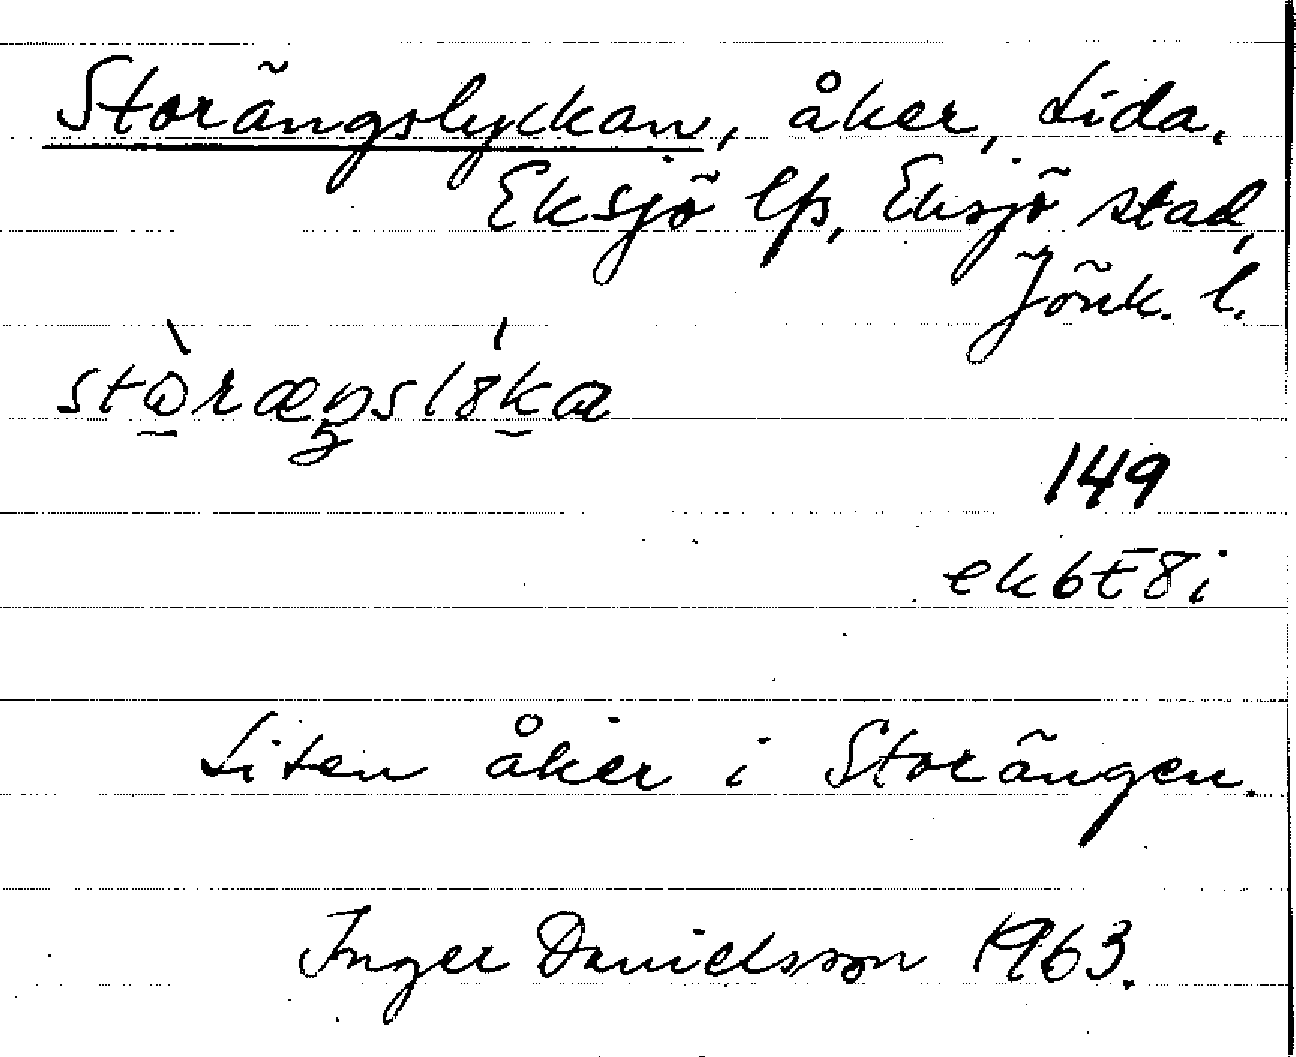 Storängslyckan, åker, Lida,
Eksjö lfs, Eksjö stad,
Jönk. l.
stòræŋslǿka
149
ek 6E8i
Liten åker i Storängen.
Inger Danielsson 1963.